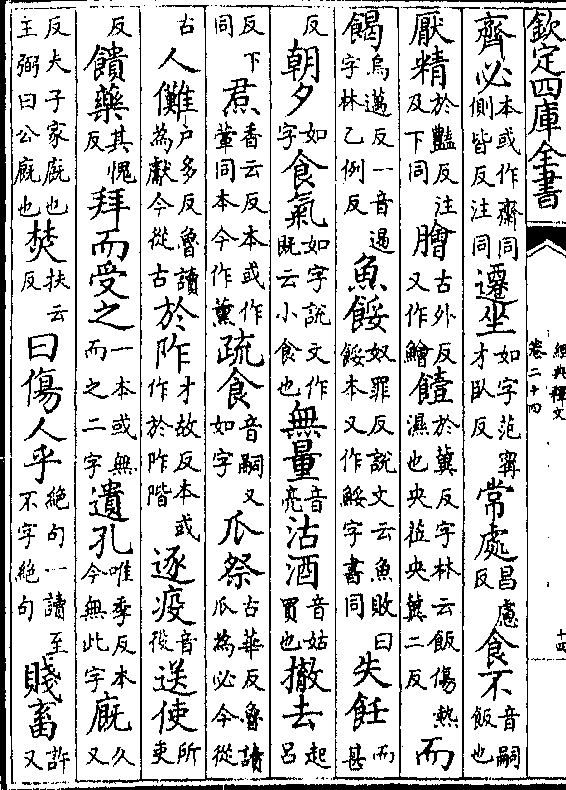 欽定四庫全書
經典釋文
卷二十四
十四
齊必本或作齋同側皆反注同遷坐如字范甯才臥反常處昌慮反食不音嗣飯也
厭精於豔反注及下同膾古外反又作鱠饐於冀反字林云飯傷熱濕也央蒞央冀二反而
餲烏邁反一音遏字林乙例反魚餒奴罪反說文云魚敗曰餒本又作鮾字書同失飪而甚
反朝夕如字食氣如字說文作既云小食也無量音亮沽酒音姑買也撤去起呂
反下同焄香云反本或作葷同本今作薰疏食音嗣又如字瓜祭古華反魯讀瓜為必今從
古人儺户多反魯讀為獻今從古於阼才故反本或作於阼階逐疫音役送使所吏
反饋藥其愧反拜而受之一本或無而之二字遺孔唯季反本今無此字廐久又
反夫子家廐也王弼曰公廐也焚扶云反曰傷人乎絕句一讀至不字絕句賤畜許又